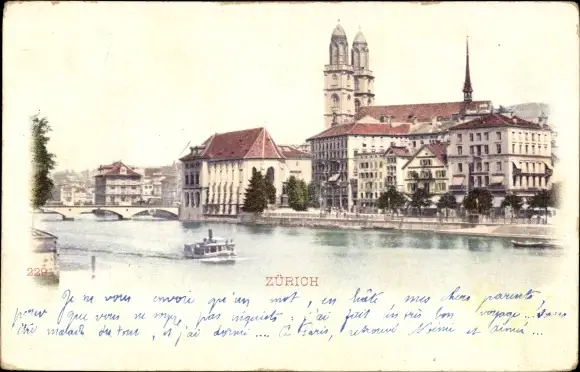 229
ZÜRICH
Je ne vous envoie qu'un mot, en hâte, mes chers parents,
pour que vous ne soyez pas inquiets: j'ai fait un très bon voyage... sans
être malade du tout, et j'ai dormi... à Paris, retrouvé et